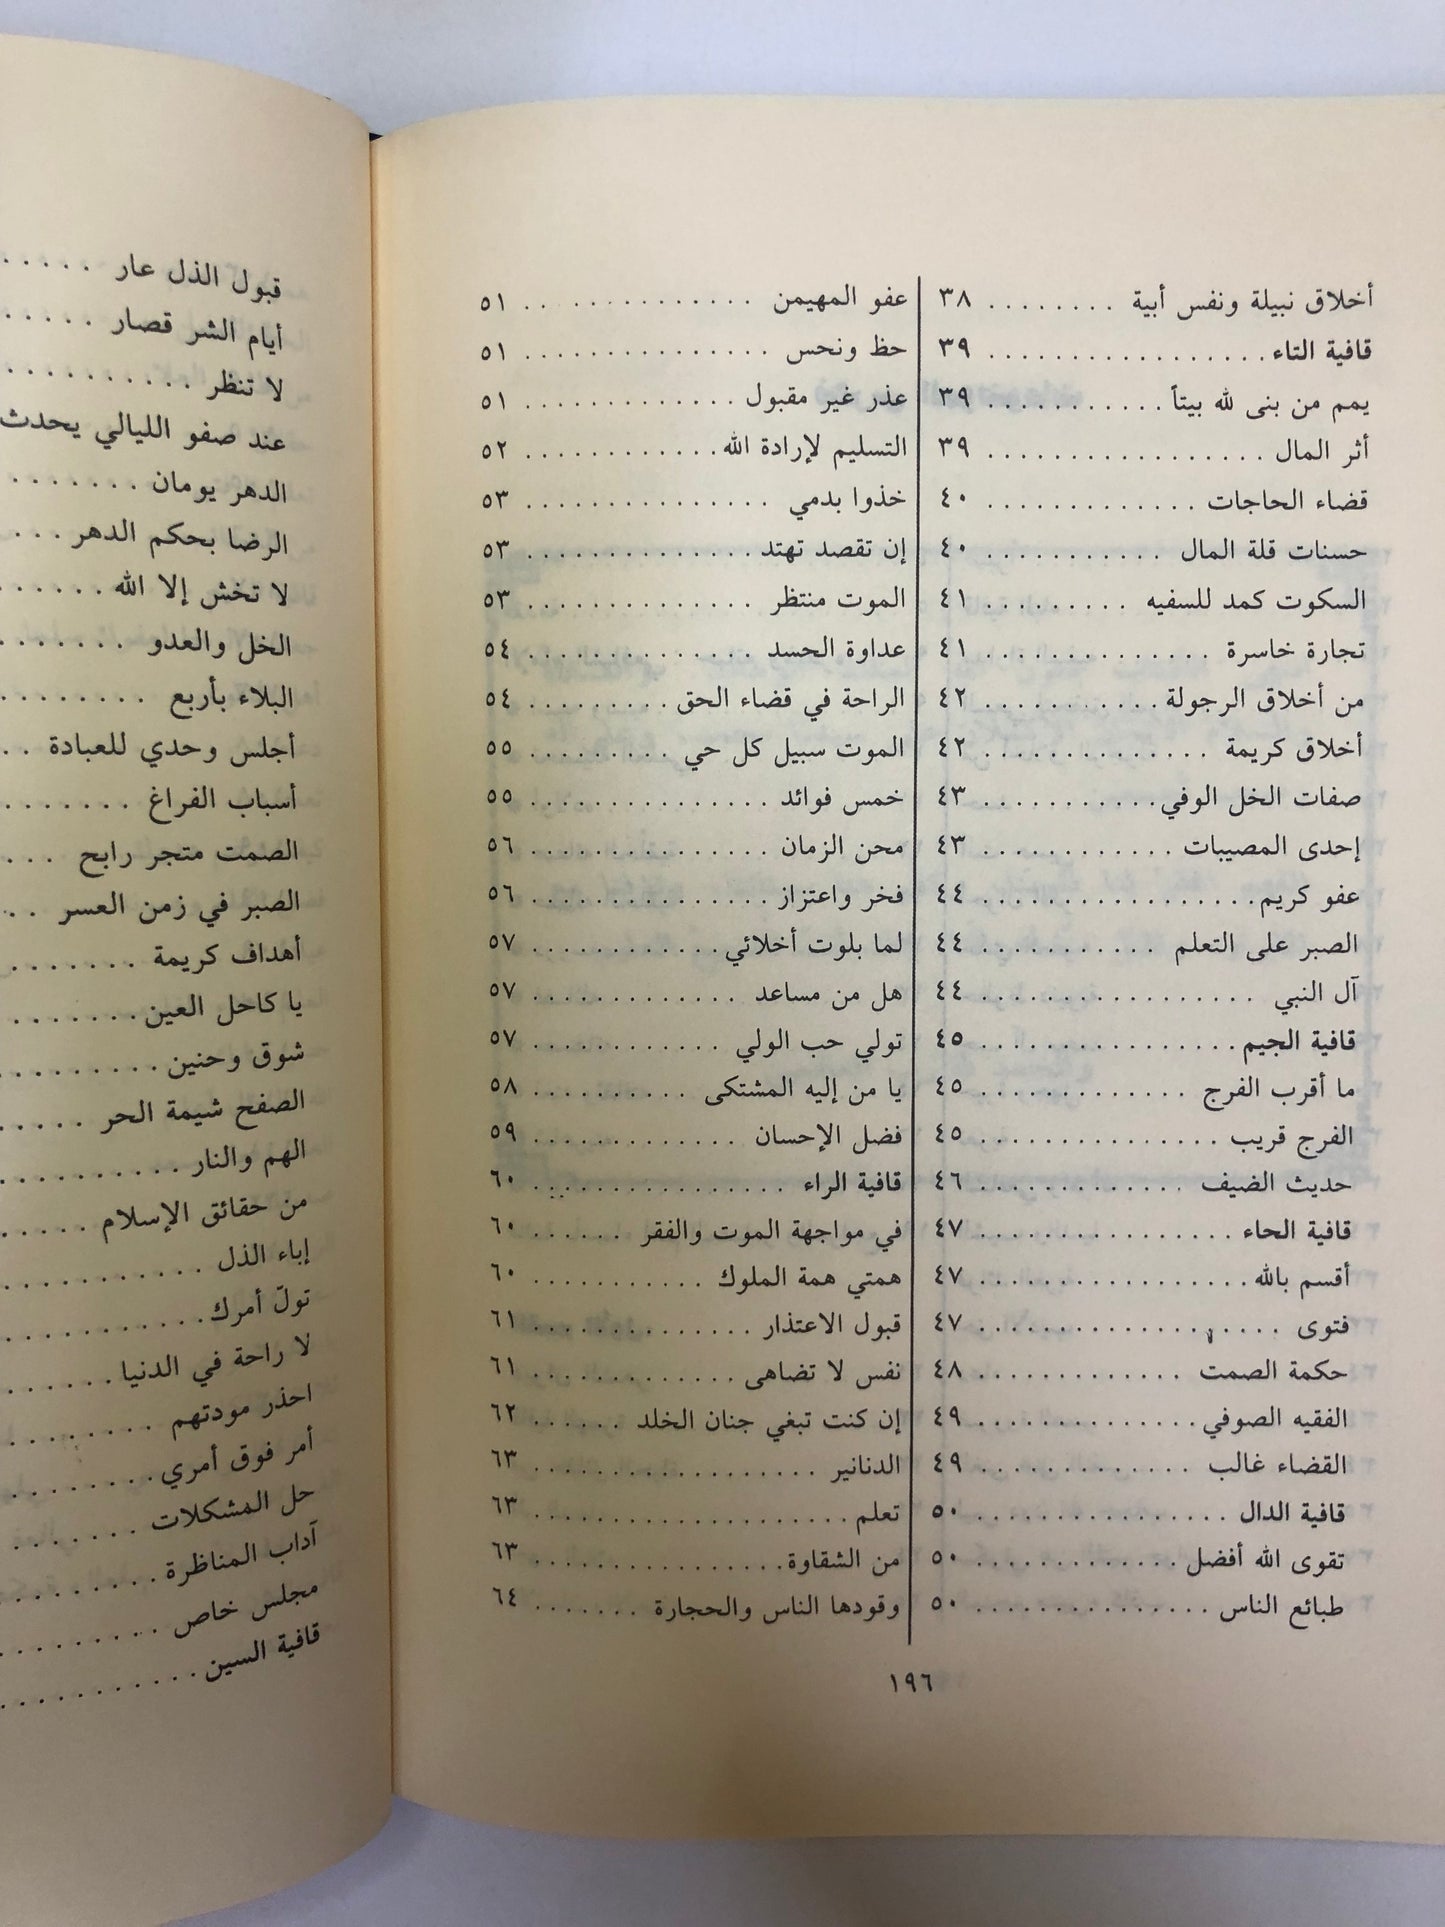 أخلاق نبيلة ونفس أبية ........ ٣٨
قافية التاء ................. ٣٩
يمم من بنى لله بيتاً ........... ٣٩
أثر المال ................. ٣٩
قضاء الحاجات ............. ٤٠
حسنات قلة المال ........... ٤٠
السكوت كمد للسفيه ......... ٤١
تجارة خاسرة .............. ٤١
من أخلاق الرجولة ........... ٤٢
أخلاق كريمة .............. ٤٢
صفات الخل الوفي ........... ٤٣
إحدى المصيبات ............ ٤٣
عفو كريم ................. ٤٤
الصبر على التعلم ........... ٤٤
آل النبي ................. ٤٤
قافية الجيم ................ ٤٥
ما أقرب الفرج ............. ٤٥
الفرج قريب ............... ٤٥
حديث الضيف ............. ٤٦
قافية الحاء ................ ٤٧
أقسم بالله ................. ٤٧
فتوى ................... ٤٧
حكمة الصمت ............. ٤٨
الفقيه الصوفي .............. ٤٩
القضاء غالب .............. ٤٩
قافية الدال ................ ٥٠
تقوى الله أفضل ............. ٥٠
طبائع الناس ............... ٥٠
عفو المهيمن .............. ٥١
حظ ونحس ............... ٥١
عذر غير مقبول ............. ٥١
التسليم لإرادة الله ............ ٥٢
خذوا بدمي ............... ٥٣
إن تقصد تهتد .............. ٥٣
الموت منتظر .............. ٥٣
عداوة الحسد .............. ٥٤
الراحة في قضاء الحق ......... ٥٤
الموت سبيل كل حي ......... ٥٥
خمس فوائد ............... ٥٥
محن الزمان ............... ٥٦
فخر واعتزاز ............... ٥٦
لما بلوت أخلائي ............ ٥٧
هل من مساعد ............. ٥٧
تولي حب الولي ............ ٥٧
يا من إليه المشتكى .......... ٥٨
فضل الإحسان ............. ٥٩
قافية الراء ................ ٦٠
في مواجهة الموت والفقر ...... ٦٠
همتي همة الملوك ........... ٦٠
قبول الاعتذار .............. ٦١
نفس لا تضاهى ............. ٦١
إن كنت تبغي جنان الخلد ...... ٦٢
الدنانير .................. ٦٣
تعلم .................... ٦٣
من الشقاوة ................ ٦٣
وقودها الناس والحجارة ....... ٦٤
١٩٦
قبول الذل عار .....
أيام الشر قصار .....
لا تنظر ..........
عند صفو الليالي يحدث
الدهر يومان .......
الرضا بحكم الدهر ...
لا تخش إلا الله ......
الخل والعدو .......
البلاء بأربع ........
أجلس وحدي للعبادة ..
أسباب الفراغ .......
الصمت متجر رابح ...
الصبر في زمن العسر ..
أهداف كريمة .......
يا كاحل العين .......
شوق وحنين .........
الصفح شيمة الحر .....
الهم والنار ..........
من حقائق الإسلام .....
إباء الذل ...........
تولّ أمرك ...........
لا راحة في الدنيا ......
احذر مودتهم ........
أمر فوق أمري ........
حل المشكلات .......
آداب المناظرة ........
مجلس خاص .........
قافية السين ...........